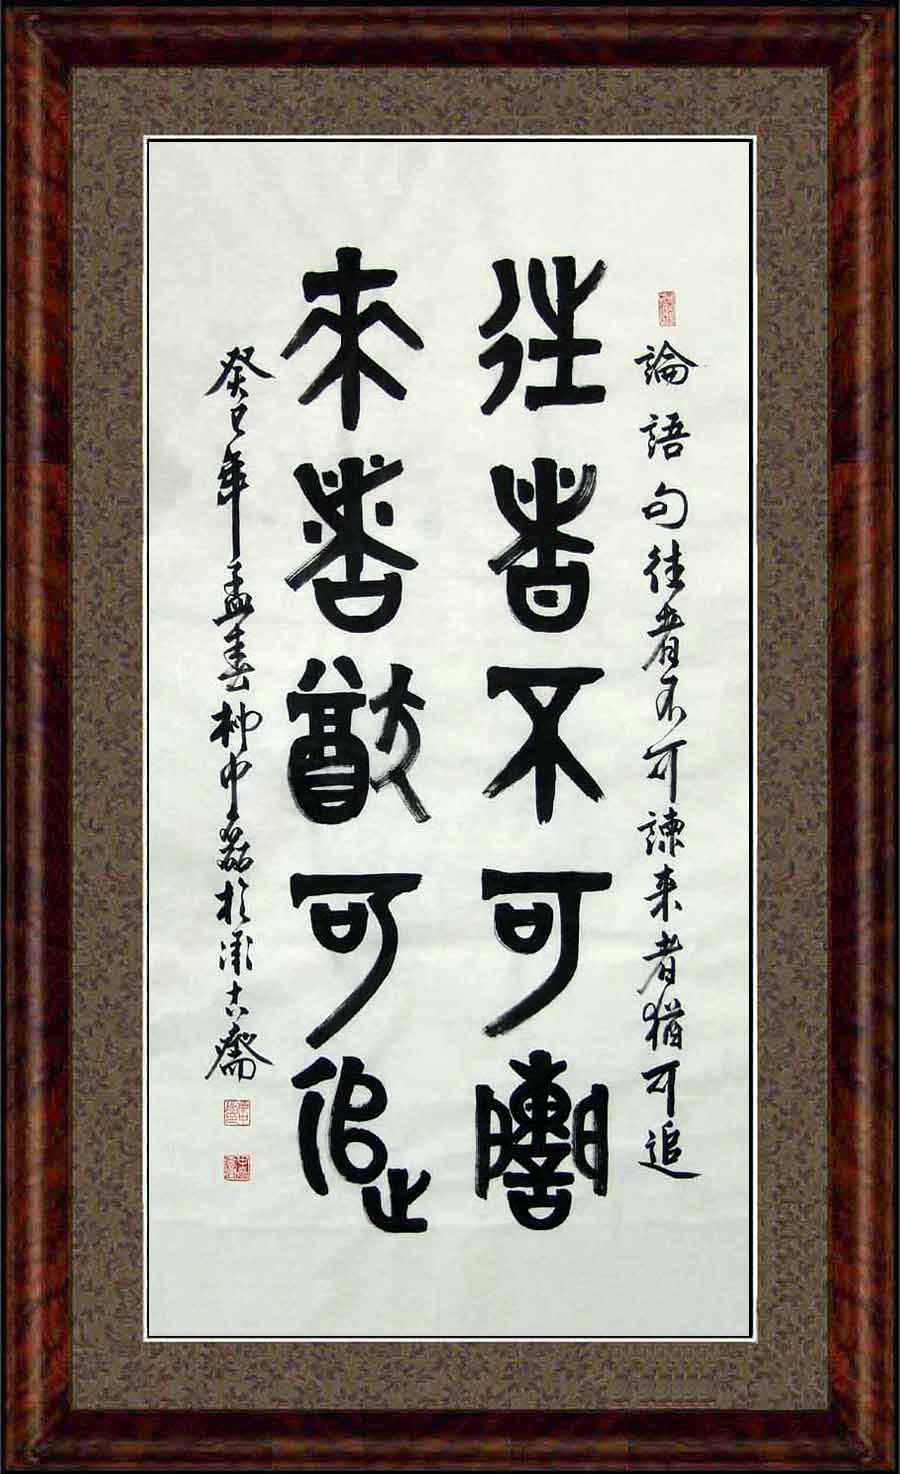 論語句往者不可諫来者猶可追
往者不可諫
来者猶可追
癸巳年孟春柳中磊於漱古齋